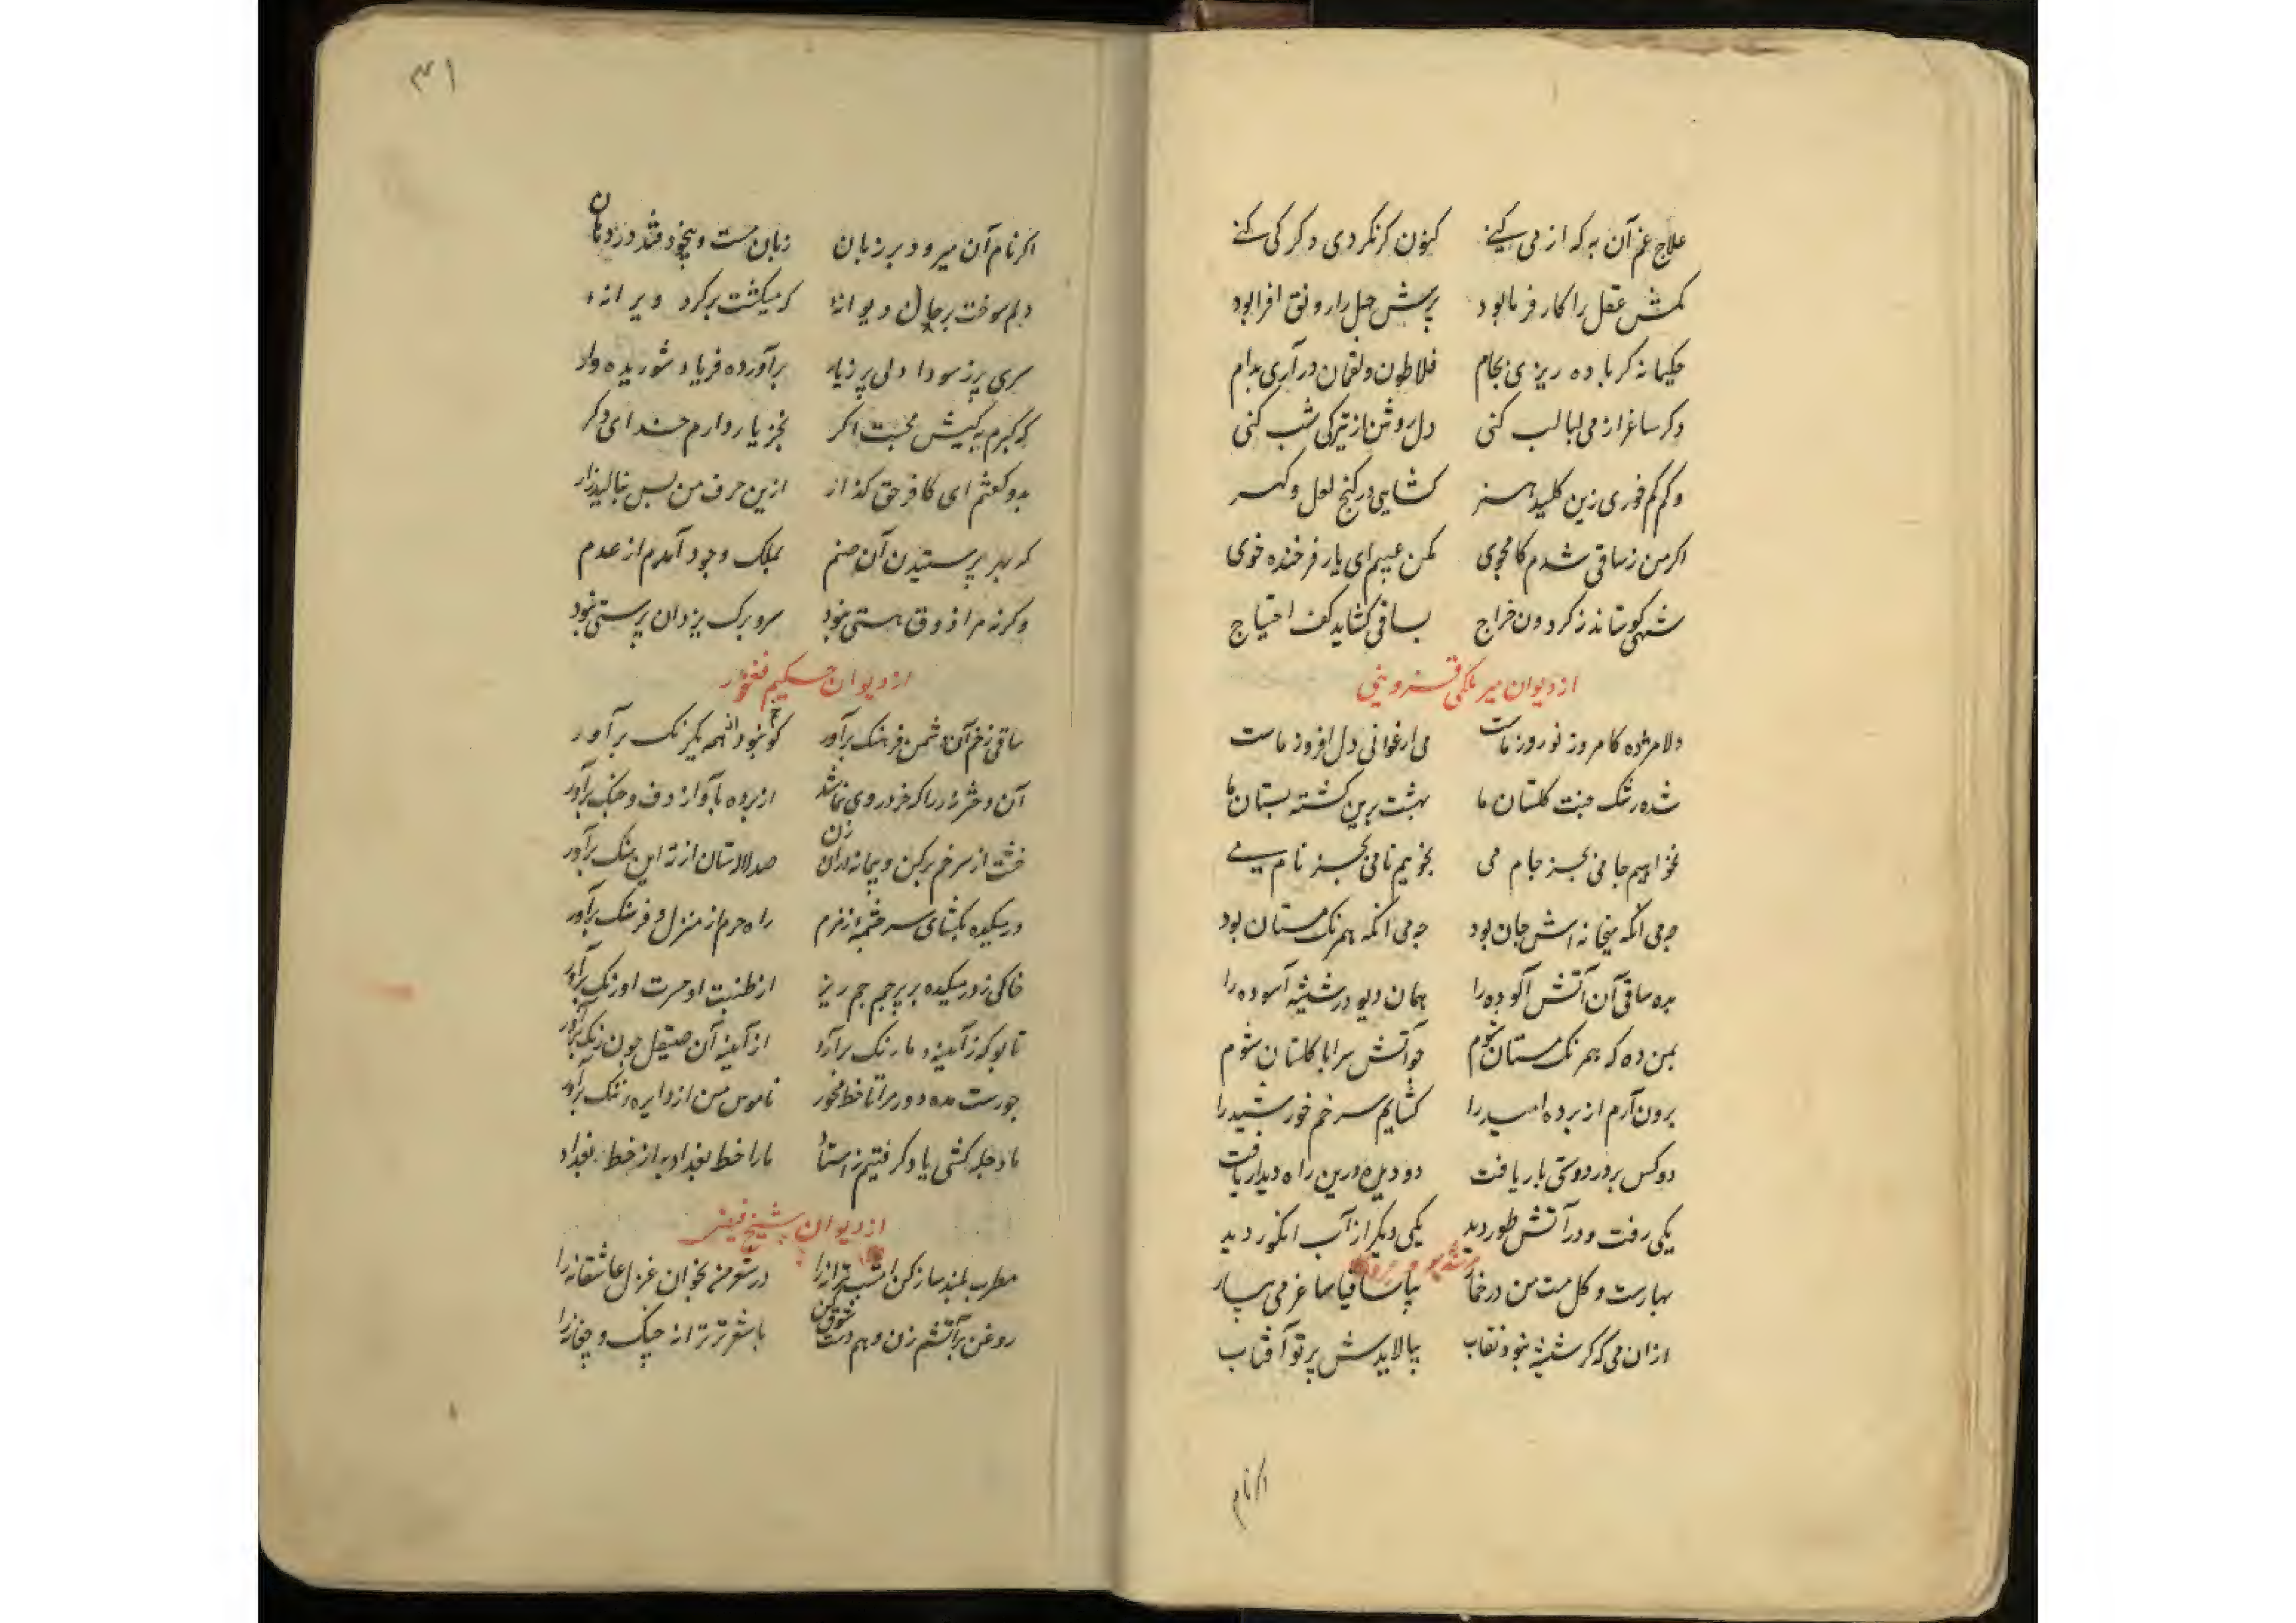 علاج غم آن به که از می کنے کنون کر نکردی دکر کی کنے
کمش عقل را کار فرما بود پرش جهل را رونق افزا بود
حکیمانه کر باده ریزی بجام فلاطون و لقمان در آری بدام
وکر ساغر از می لبالب کنی دل روشن از تیرکی شب کنی
وکر کم خوری زین کلید هنر کشایی در کنج لعل و کهر
اکر من ز ساقی شدم کامجوی مکن عیبم ای یار فرخنده خوی
شهی کو ستاند ز کردون خراج بساقی کشاید کف احتیاج
از دیوان میر ملکی قزوینی
دلا مژده کامروز نوروز ماست می ارغوانی دل افروز ماست
شده رشک جنت کلستان ما بهشت برین کشته بستان ما
نخواهیم جامی بجز جام می نجوییم نامی بجز نام می
چه می آنکه میخانه اش جان بود چه می آنکه همرنک مستان بود
بده ساقی آن آتش آلوده را همان دیو در شیشه آسوده را
بمن ده که همرنک مستان شوم چو آتش سراپا کلستان شوم
برون آرم از پرده امید را کشایم سر خم خورشید را
دو کس بر در دوستی بار یافت دو دیده درین راه دیدار یافت
یکی رفت و در آتش طور دید یکی دیکر از آب انکور دید
بهارست و کل مست من در خمار بیا ساقیا ساغر می بیار
ازان می که کر شیشه نبود نقاب بپالایدش پرتو آفتاب
اکر نام
۳۱
اکر نام آن میرود بر زبان زبان مست و بیخود فتد در دهان
دلم سوخت بر حال دیوانهٔ که میکشت بر کرد ویرانهٔ
سری پر ز سودا دلی پر ز یار برآورده فریاد شوریده وار
که کبرم به کیش محبت اکر بجز یار دارم خدای دکر
بدو کفتم ای کافر حق کذار ازین حرف من بس بنالید زار
که بهر پرستیدن آن صنم بملک وجود آمدم از عدم
وکرنه مرا ذوق هستی نبود سر و برک یزدان پرستی نبود
از دیوان حکیم فغفور
ساقی ز خم آن دشمن فرهنک برآور کو نبود آنهم یکرنک برآور
آن دختر رز را که خرد روی نماشد از پرده بآواز دف و چنک برآور
خشت از سر خم برکن و پیمانه دران زن صد لالستان از ته این سنک برآور
در میکده بکشای سر چشمه زمزم راه حرم از منزل و فرسنک برآور
خاکی ز در میکده بر پرچم جم ریز از طینت او حسرت اورنک برآور
تا بو که ز آیینه ما رنک برآرد از آینه آن صیقل چون زنک برآور
چو رست مده دور مرا تا خط مخمور ناموس من از دایره ننک برآور
ما دجله کشی یاد کرفتیم ز استاد ما را خط بغداد به از خطهٔ بغداد
از دیوان شیخ فیضی
مطرب بلند ساز کن امشب ترانه را در شعر من بخوان غزل عاشقانه را
روغن بر آتشم زن و هم دست شوق کن با شعر تر ترانه چنک و چغانه را